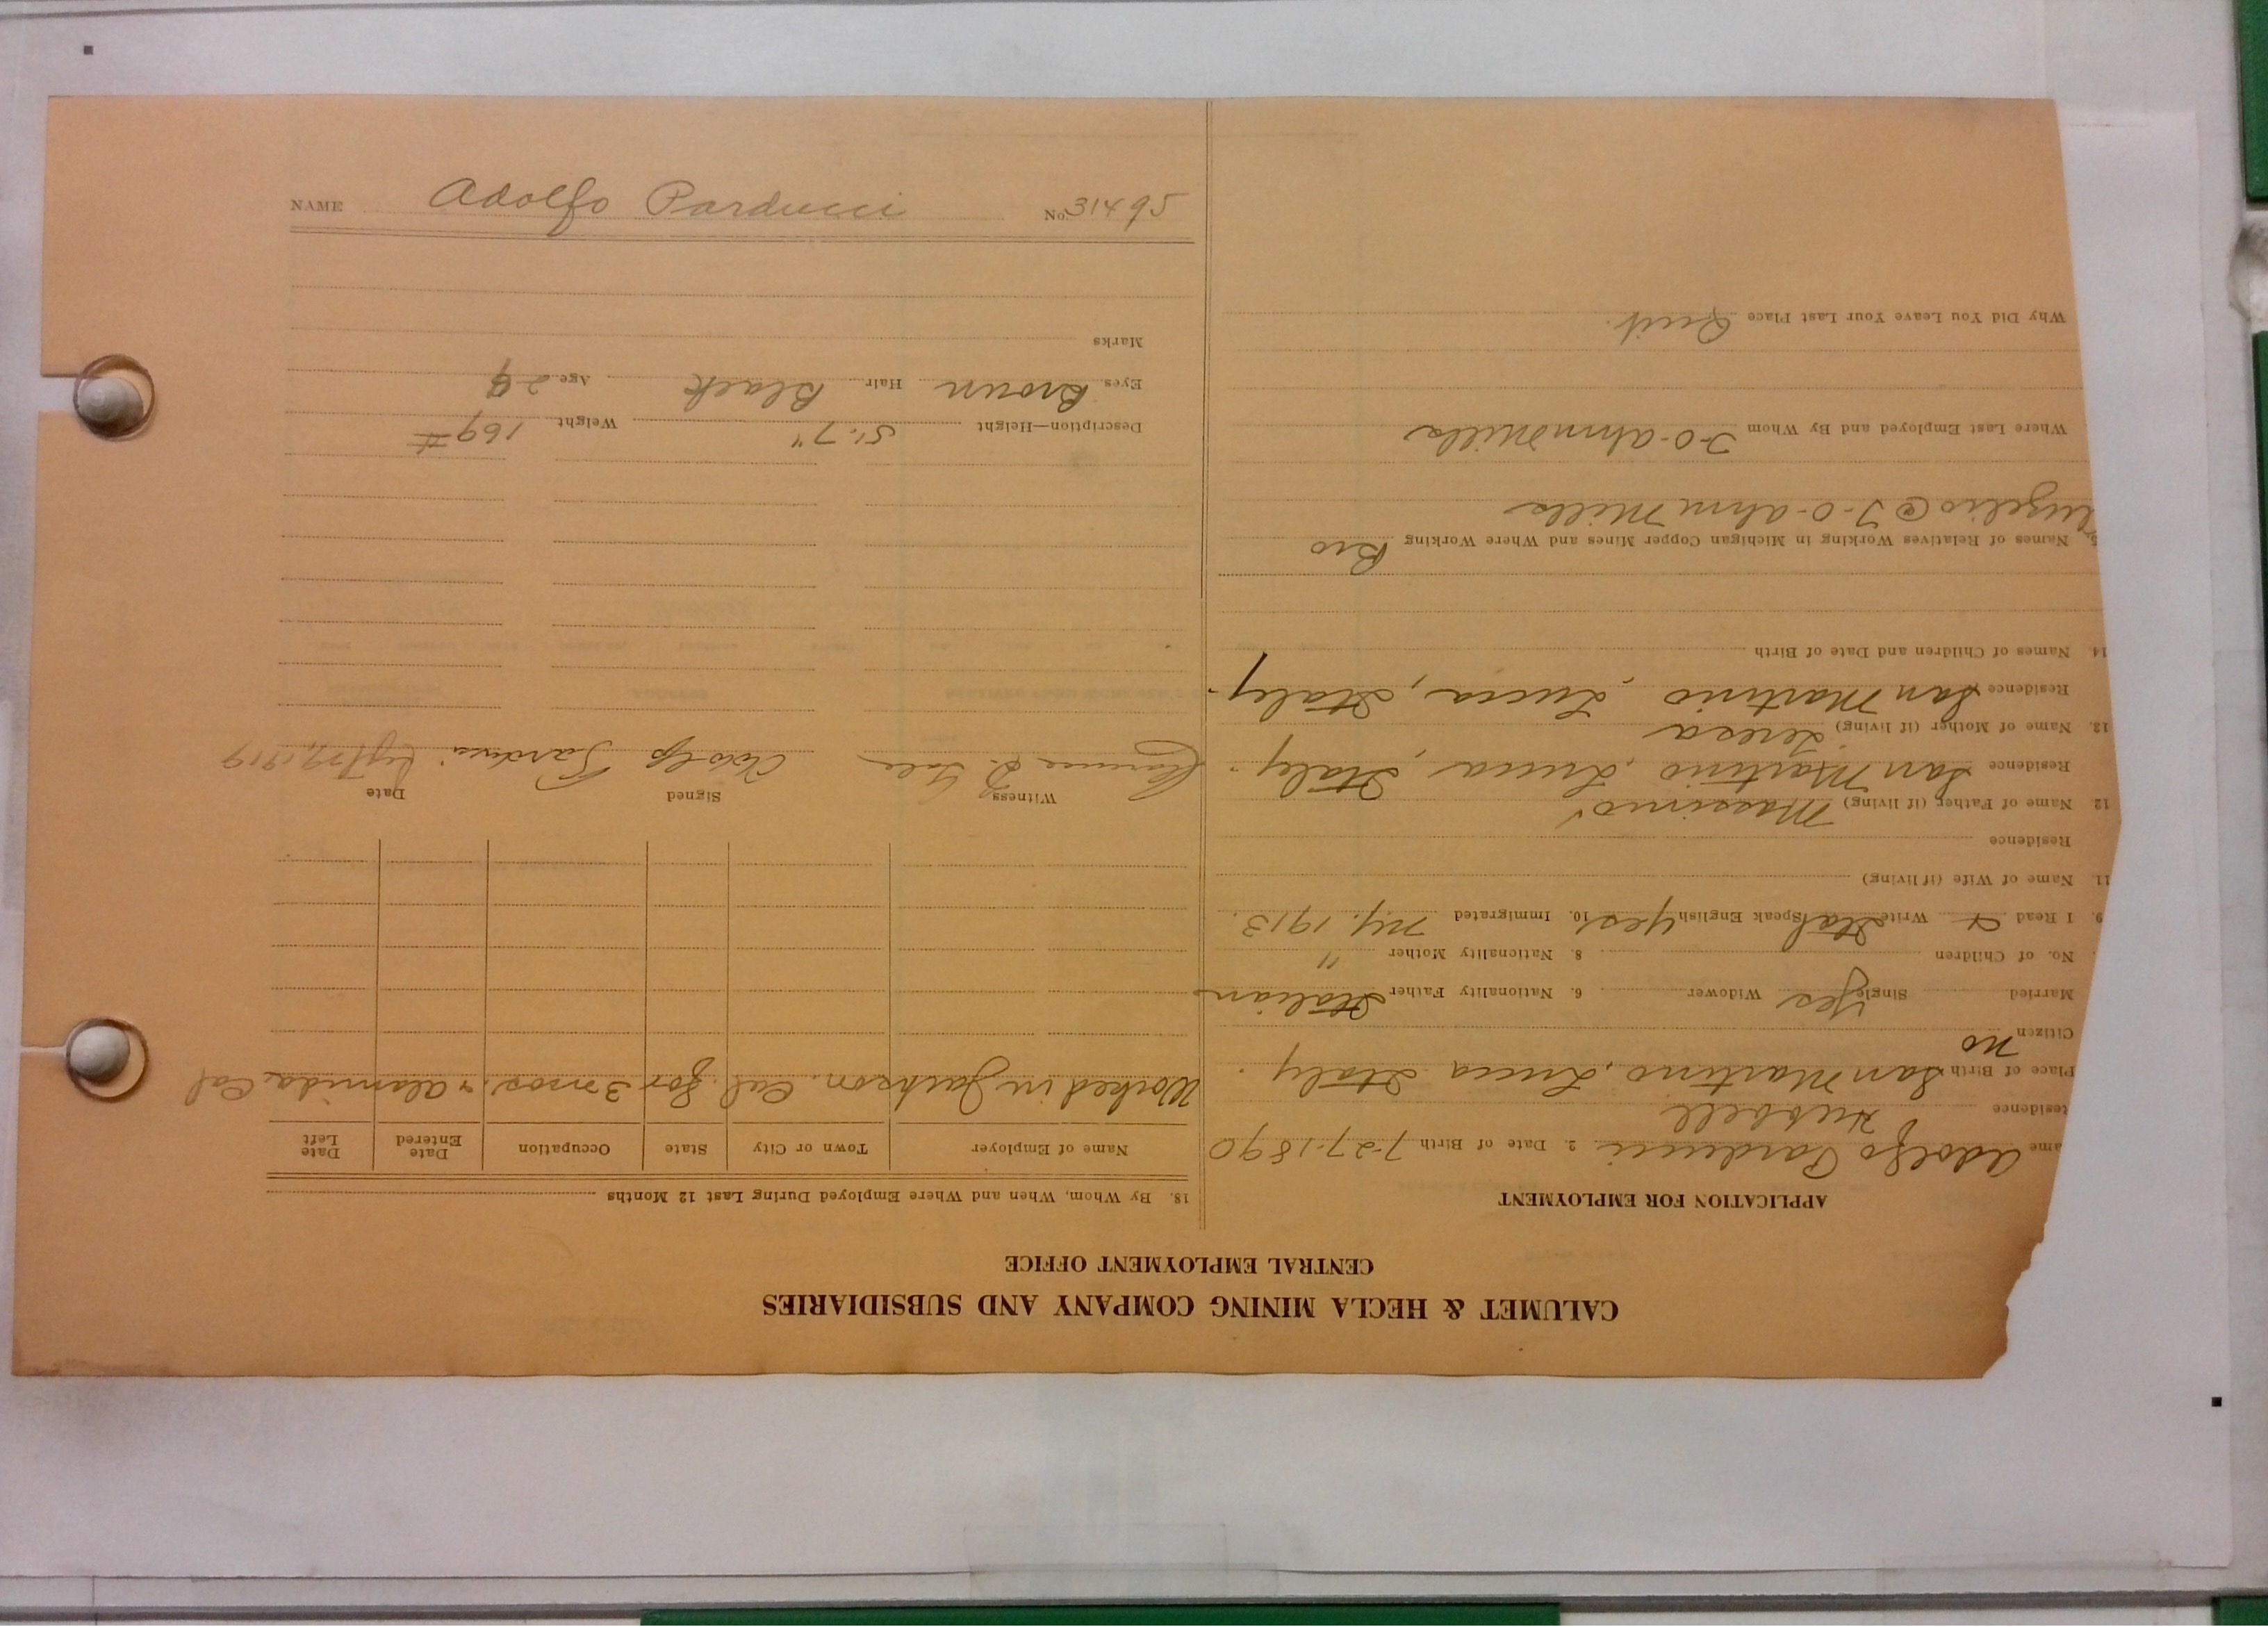 CALUMET & HECLA MINING COMPANY AND SUBSIDIARIES
CENTRAL EMPLOYMENT OFFICE
APPLICATION FOR EMPLOYMENT
ame Adolfo Parducci 2. Date of Birth 7-27-1890
esidence Hubbell
Place of Birth San Martino, Lucca Italy.
Citizen no
Married Single Yes Widower 6. Nationality Father Italian
No. of Children 8. Nationality Mother "
9. I Read & Write Ital Speak English yes 10. Immigrated Ny. 1913.
11. Name of Wife (if living)
Residence
12. Name of Father (if living) Massimo
Residence San Martino, Lucca, Italy.
13. Name of Mother (if living) Teresa
Residence San Martino, Lucca, Italy.
14. Names of Children and Date of Birth
Names of Relatives Working in Michigan Copper Mines and Where Working Bro
@ Mills
Where Last Employed and By Whom Mills
Why Did You Leave Your Last Place Quit.
18. By Whom, When and Where Employed During Last 12 Months
Name of Employer Town or City State Occupation Date Entered Date Left
Worked in Jackson. Cal. for 3 mos. & Alamida Cal
Witness Signed Date
Clarence Adolfo Parducci 1919
Description—Height 5'-7" Weight 169#
Eyes Brown Hair Black Age 29
Marks
NAME Adolfo Parducci No. 31495